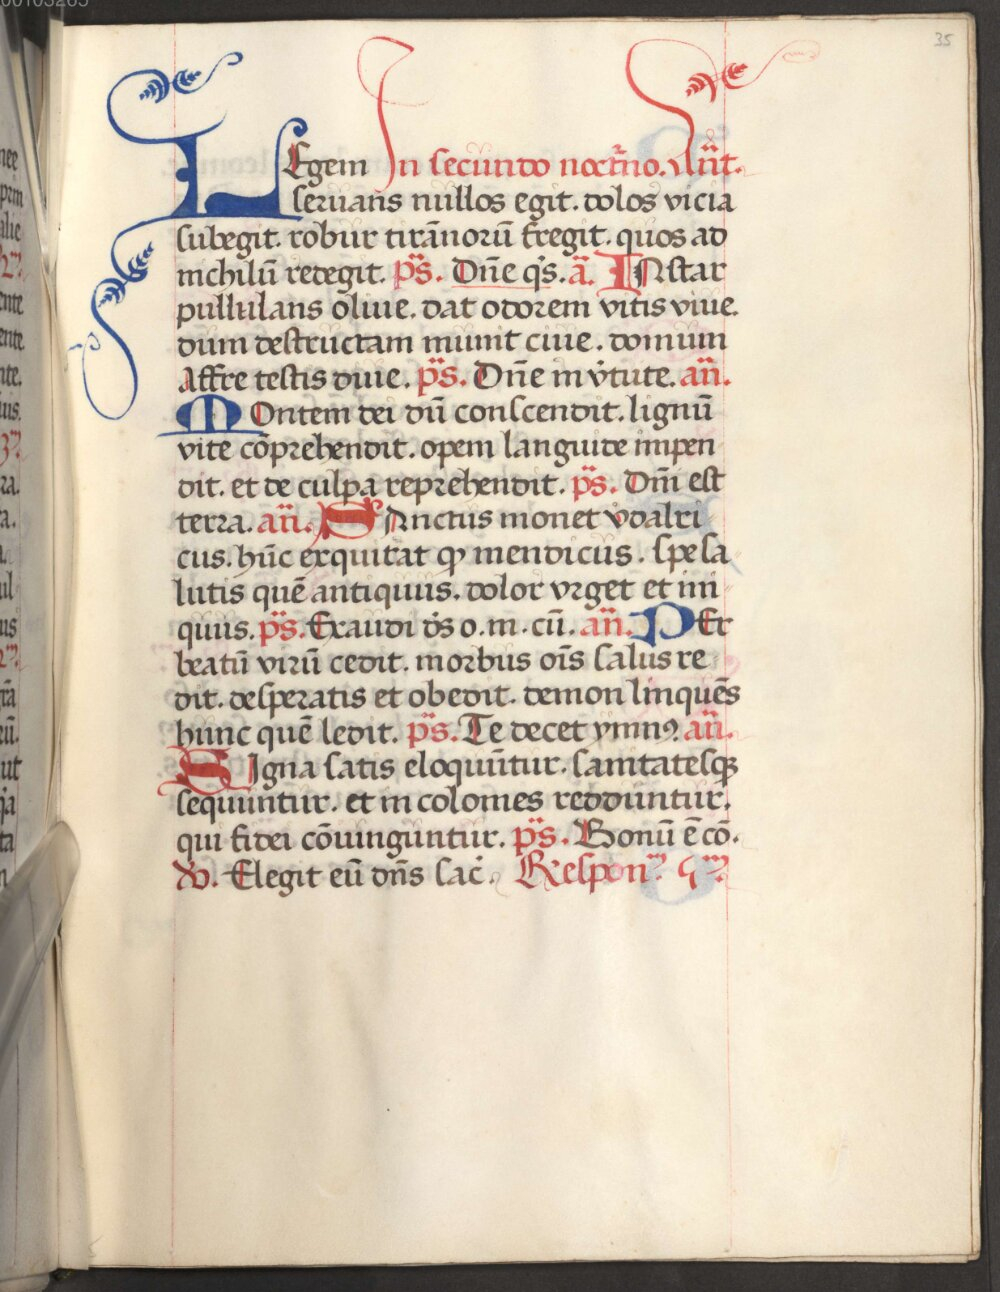 35
LEgem In secundo noct̄no. Añt.
seruans nullos egit. dolos vicia
subegit. robur tirānorū fregit. quos ad
nichilū redegit. ps̄. Dñe qs̄. ā. INstar
pullulans oliue. dat odorem vitis viue.
dum destructam muniit ciue. domum
Affre testis diue. ps̄. Dñe in v̓tute. añ.
MOntem dei dū conscendit. lignū
vite cōprehendit. opem languide impen
dit. et de culpa reprehendit. ps̄. Dñi est
terra. añ. SAnctus monet vͦdalri
cus. hūc exquirat qͥ mendicus. spe sa
lutis quē antiquus. dolor vrget et ini
quus. ps̄. Exaudi ds̄ o. m. cū. añ. PEr
beatū virū cedit. morbus oīs salus re
dit. desperatis et obedit. demon linquēs
hunc quē ledit. ps̄. Te decet ymnꝰ añ.
SIgna satis eloquūtur. sanitatesqꝫ
sequuntur. et in colomes redduntur.
qui fidei cōuinguntur. ps̄. Bonū ē cō.
V. Elegit eū dñs sac̓. Respon